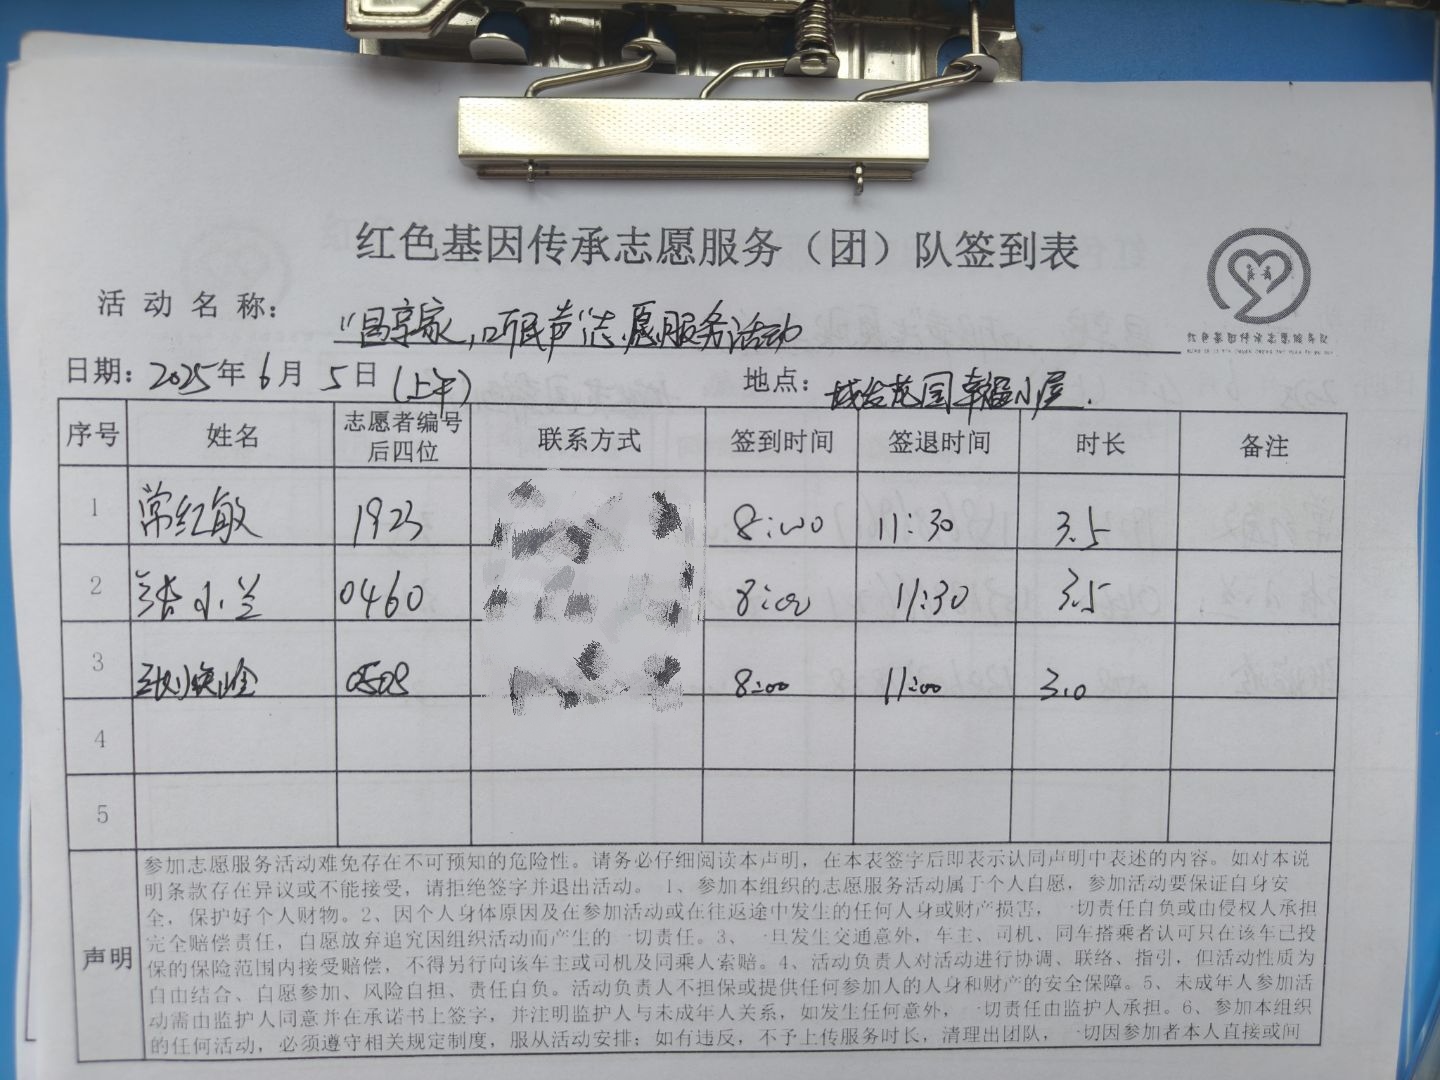 红色基因传承志愿服务（团）队签到表
红色基因传承志愿服务队
活动名称： "昌享家，听民声"志愿服务活动
日期：2025年6月5日（上午） 地点： 幸福小屋
序号 姓名 志愿者编号后四位 联系方式 签到时间 签退时间 时长 备注
1 常红敏 1923 8:00 11:30 3.5
2 张小兰 0460 8:00 11:30 3.5
3 0508 8:00 11:00 3.0
4
5
声明
参加志愿服务活动难免存在不可预知的危险性。请务必仔细阅读本声明，在本表签字后即表示认同声明中表述的内容。如对本说
明条款存在异议或不能接受，请拒绝签字并退出活动。 1、参加本组织的志愿服务活动属于个人自愿，参加活动要保证自身安
全，保护好个人财物。2、因个人身体原因及在参加活动或在往返途中发生的任何人身或财产损害，一切责任自负或由侵权人承担
完全赔偿责任，自愿放弃追究因组织活动而产生的一切责任。3、一旦发生交通意外，车主、司机、同车搭乘者认可只在该车已投
保的保险范围内接受赔偿，不得另行向该车主或司机及同乘人索赔。4、活动负责人对活动进行协调、联络、指引，但活动性质为
自由结合、自愿参加、风险自担、责任自负。活动负责人不担保或提供任何参加人的人身和财产的安全保障。5、未成年人参加活
动需由监护人同意并在承诺书上签字，并注明监护人与未成年人关系，如发生任何意外，一切责任由监护人承担。6、参加本组织
的任何活动，必须遵守相关规定制度，服从活动安排；如有违反，不予上传服务时长，清理出团队，一切因参加者本人直接或间